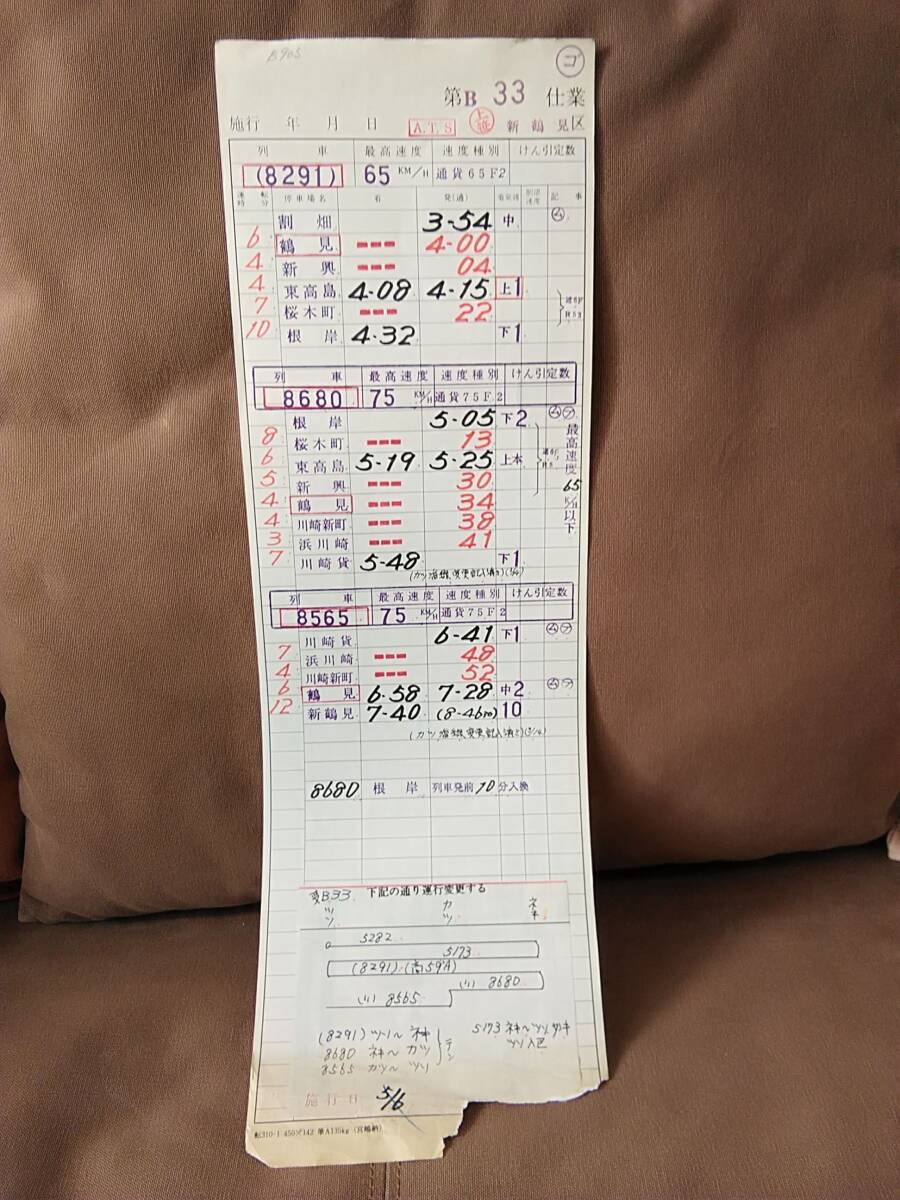 B905
ゴ
第B 33 仕業
施行 年 月 日 A.T.S 上 新鶴見区
列車 最高速度 速度種別 けん引定数
(8291) 65 KM/H 通貨65F2
運転時分 停車場名 着 発(通) 着発線 制限速度 記事
割畑 3-54 中 ム
6 鶴見 4-00
4 新興 04
4 東高島 4-08 4-15 上1
7 桜木町 22
10 根岸 4-32 下1
列車 最高速度 速度種別 けん引定数
8680 75 KM/H 通貨75F2
根岸 5-05 下2 ム フ
8 桜木町 13
6 東高島 5-19 5-25 上本
5 新興 30
4 鶴見 34
4 川崎新町 38
3 浜川崎 41
7 川崎貨 5-48 下1
最高速度65K/H以下
列車 最高速度 速度種別 けん引定数
8565 75 KM/H 通貨75F2
川崎貨 6-41 下1 ム フ
7 浜川崎 48
4 川崎新町 52
6 鶴見 6-58 7-28 中2 ム フ
12 新鶴見 7-40 (8-46 10) 10
8680 根岸 列車発前10分入換
変B33 下記の通り運行変更する
ツン カツ ネキ
5282
5173
(8291) (高59A)
(リ) 8680
(リ) 8565
(8291) ツリ〜ネキ
8680 ネキ〜カツ
8565 カツ〜ツリ
テン
5173 ネキ〜ツリ
施行日 5/6
転310-1 450×142 華A135kg (宮嶋納)